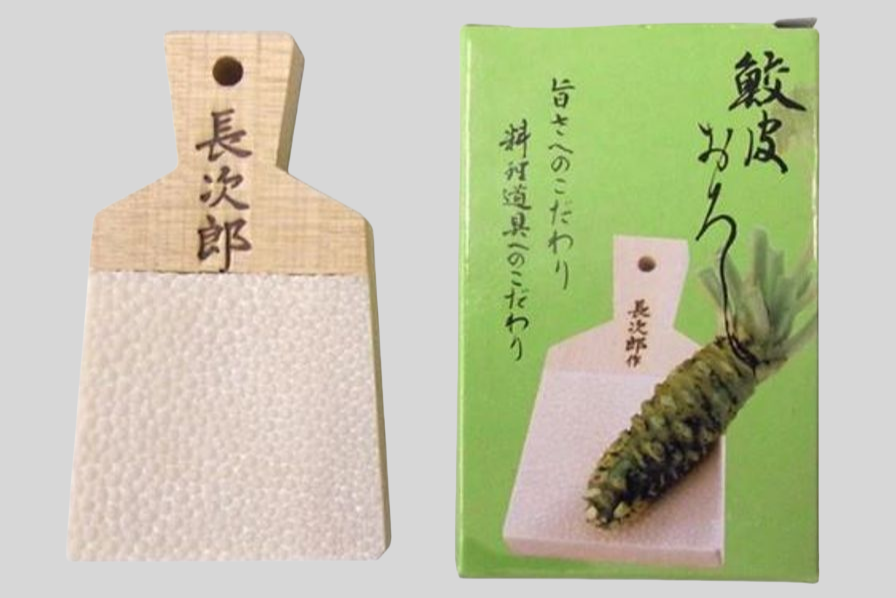 長次郎
鮫皮おろし
旨さへのこだわり
料理道具へのこだわり
長次郎作